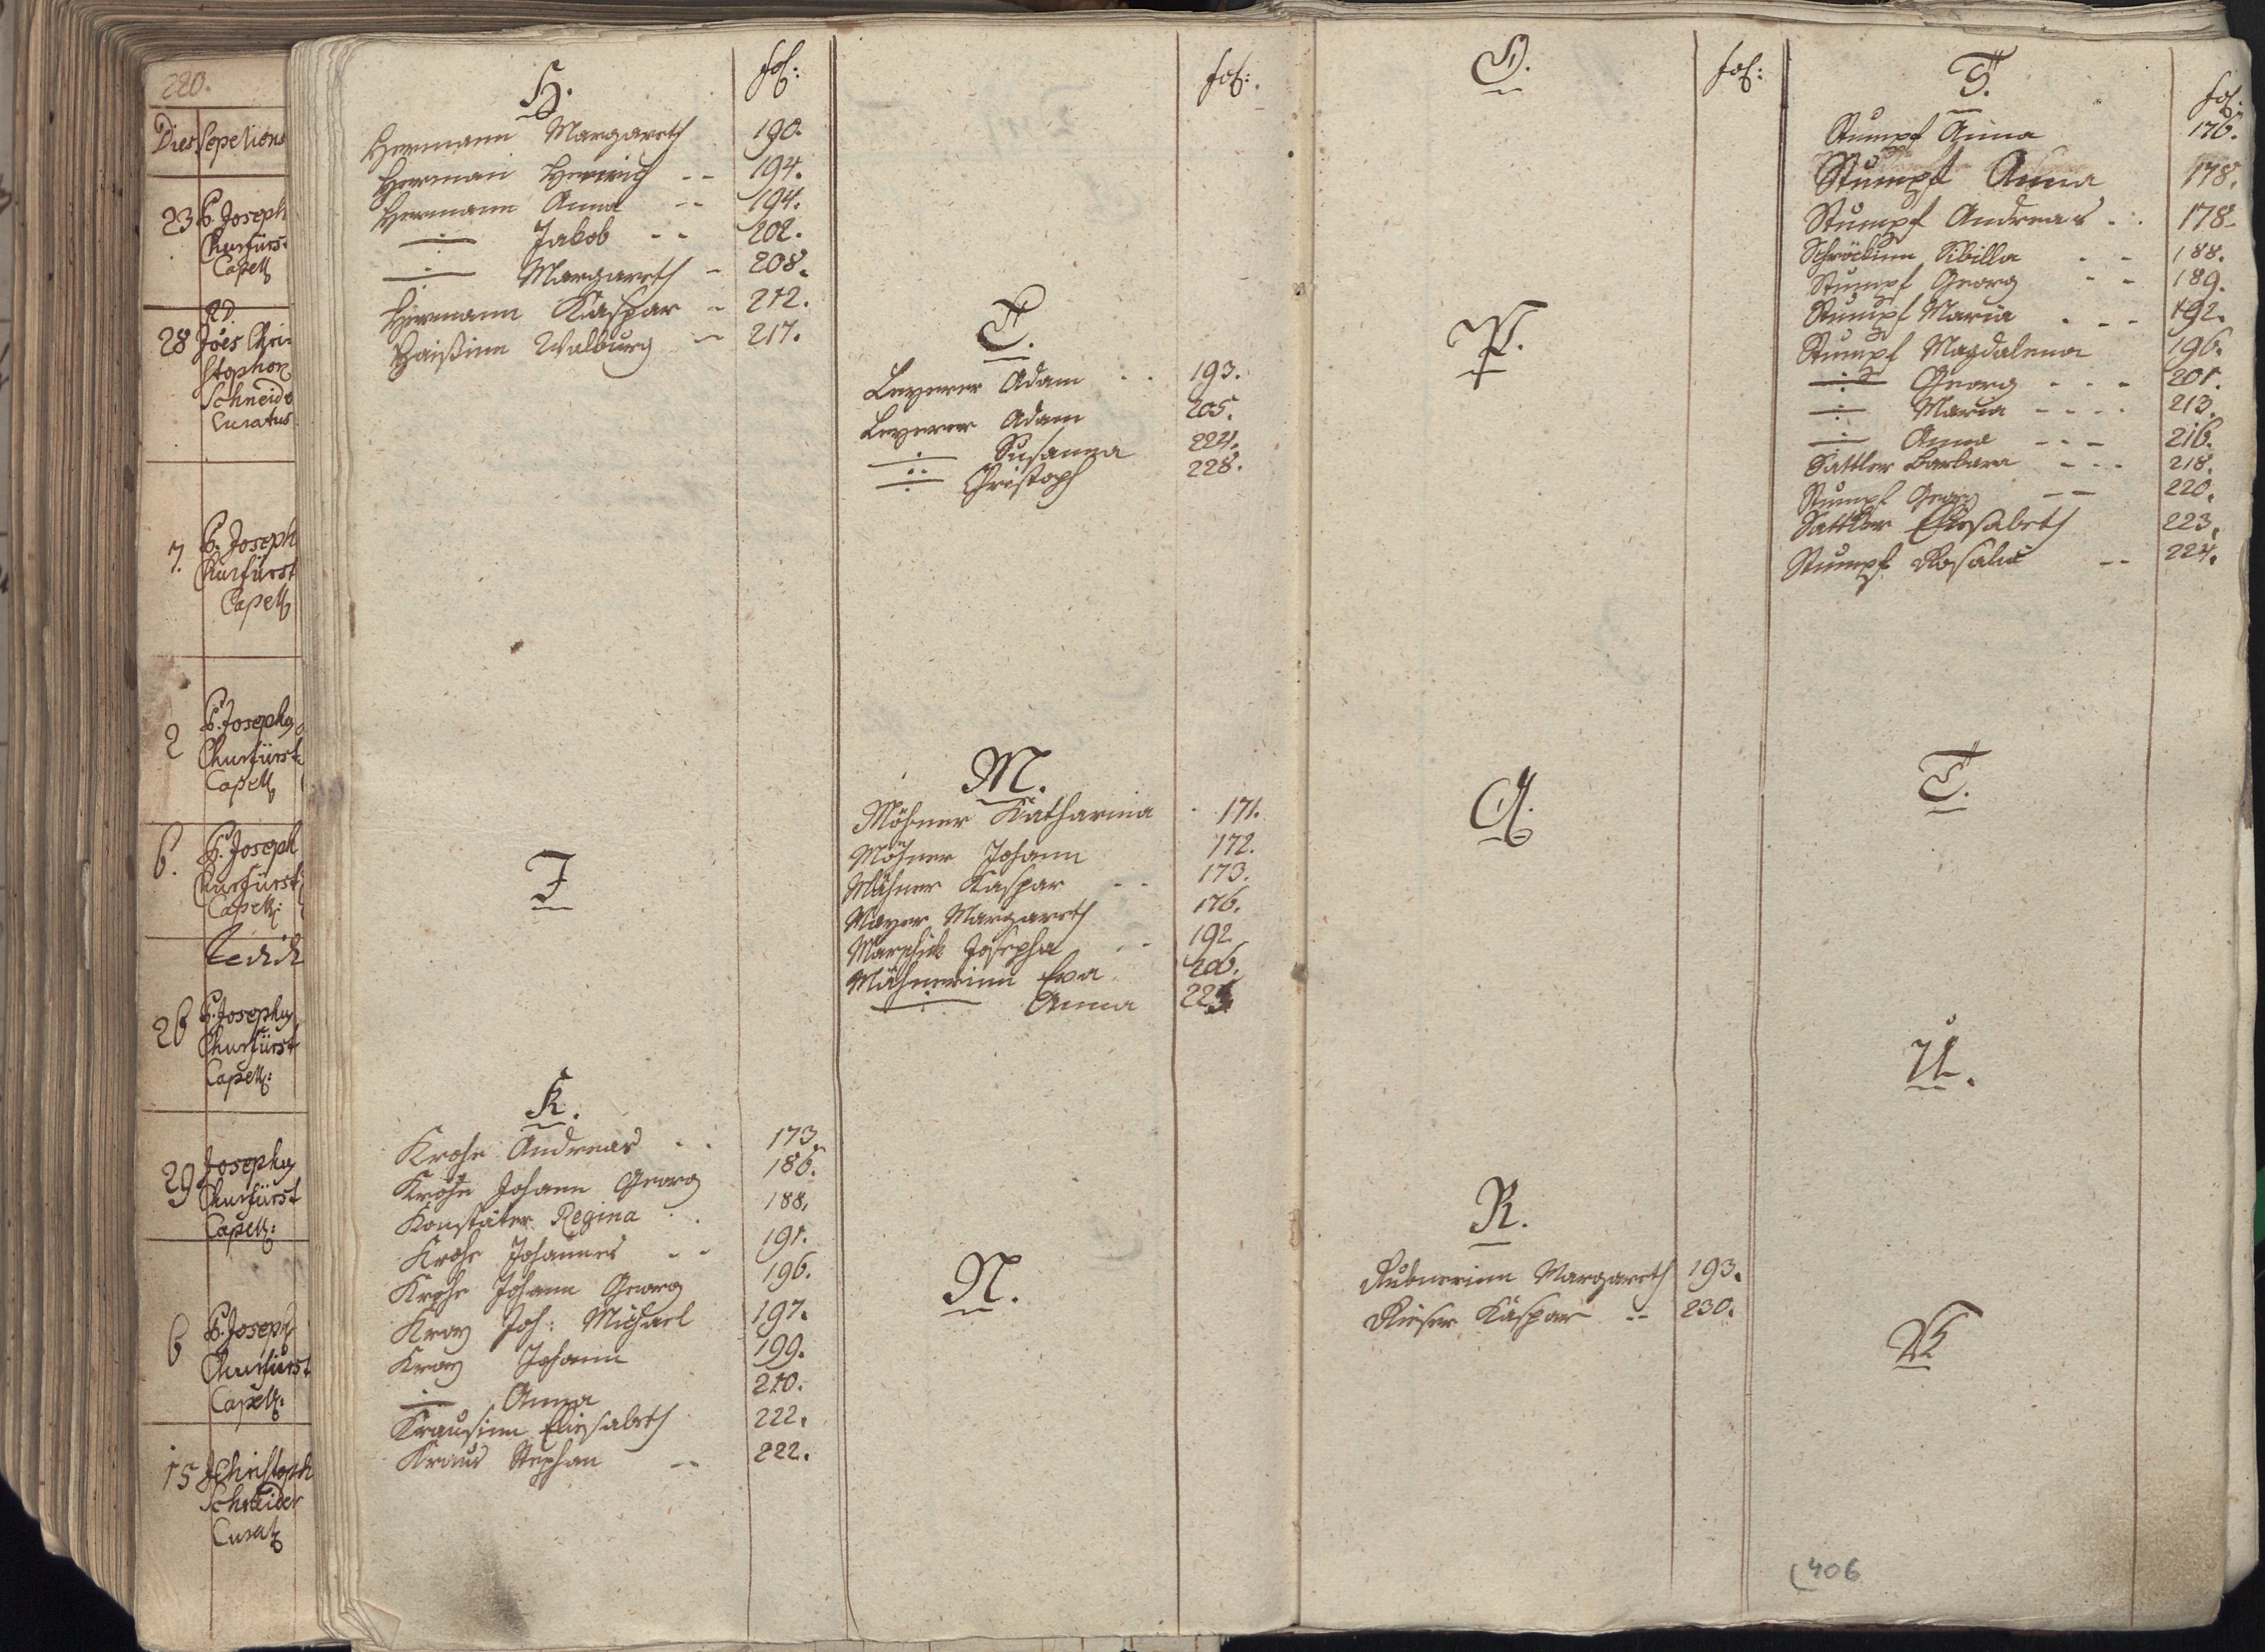 220.
Dies Sepelions
23 P. Joseph
Churfürst
Capell
RD.
28 Joës Chri-
stophor
Schneid
Curatus
7. P. Joseph
Churfürst
Capell
2 P. Joseph
Churfürst
Capell
6. P. Joseph
Churfürst
Capell:
26 P. Joseph
Churfürst
Capell:
29 Joseph
Churfürst
Capell:
6 P. Joseph
Churfürst
Capell:
15 JChristoph
Schneider
Curat
H. fol:
Hermann Margareth 190.
Herman Henrich -- 194.
Hermann Anna -- 194.
-÷- Jakob -- 202.
-÷- Margareth - 208.
Hermann Kaspar - 212.
Haißinn Walburg - 217.
J
K.
Krohe Andreas .. 173.
Krohe Johann Georg 186.
Konstäter Regina .. 188.
Krohe Johannes -- 191.
Krohe Johann Georg 196.
Kroy Joh: Michael 197.
Kroy Johann 199.
-÷- Anna 210.
Krausinn Elisabeth 222.
Kraus Stephan -- 222.
fol:
L.
Leyerer Adam .. 193.
Leyerer Adam 205.
-÷- Susanna 224.
-÷- Christoph 228.
M.
Möhner Katharina . 171.
Möhner Johann 172.
Mähner Kaspar -- 173.
Mayer Margareth 176.
Josepha .. 192
Mähnerinn Eva 206.
-÷- Anna
N.
O. fol:
P.
Q.
R.
Rubnerinn Margareth 193.
Rieser Kaspar -- 230.
S. fol:
Stumpf Anna 176.
Stumpf Anna 178.
Stumpf Andreas .. 178
Schröckinn Sibilla -- 188.
Stumpf Georg -- 189.
Stumpf Maria --- 192.
Stumpf Magdalena 196.
-÷- Georg --- 201.
-÷- Maria ---- 213.
-÷- Anna --- 216.
Sattler Barbara --- 218.
Stumpf Georg -- 220.
Sattler Elisabeth 223.
Stumpf Rosalia -- 224.
T.
U.
W
406